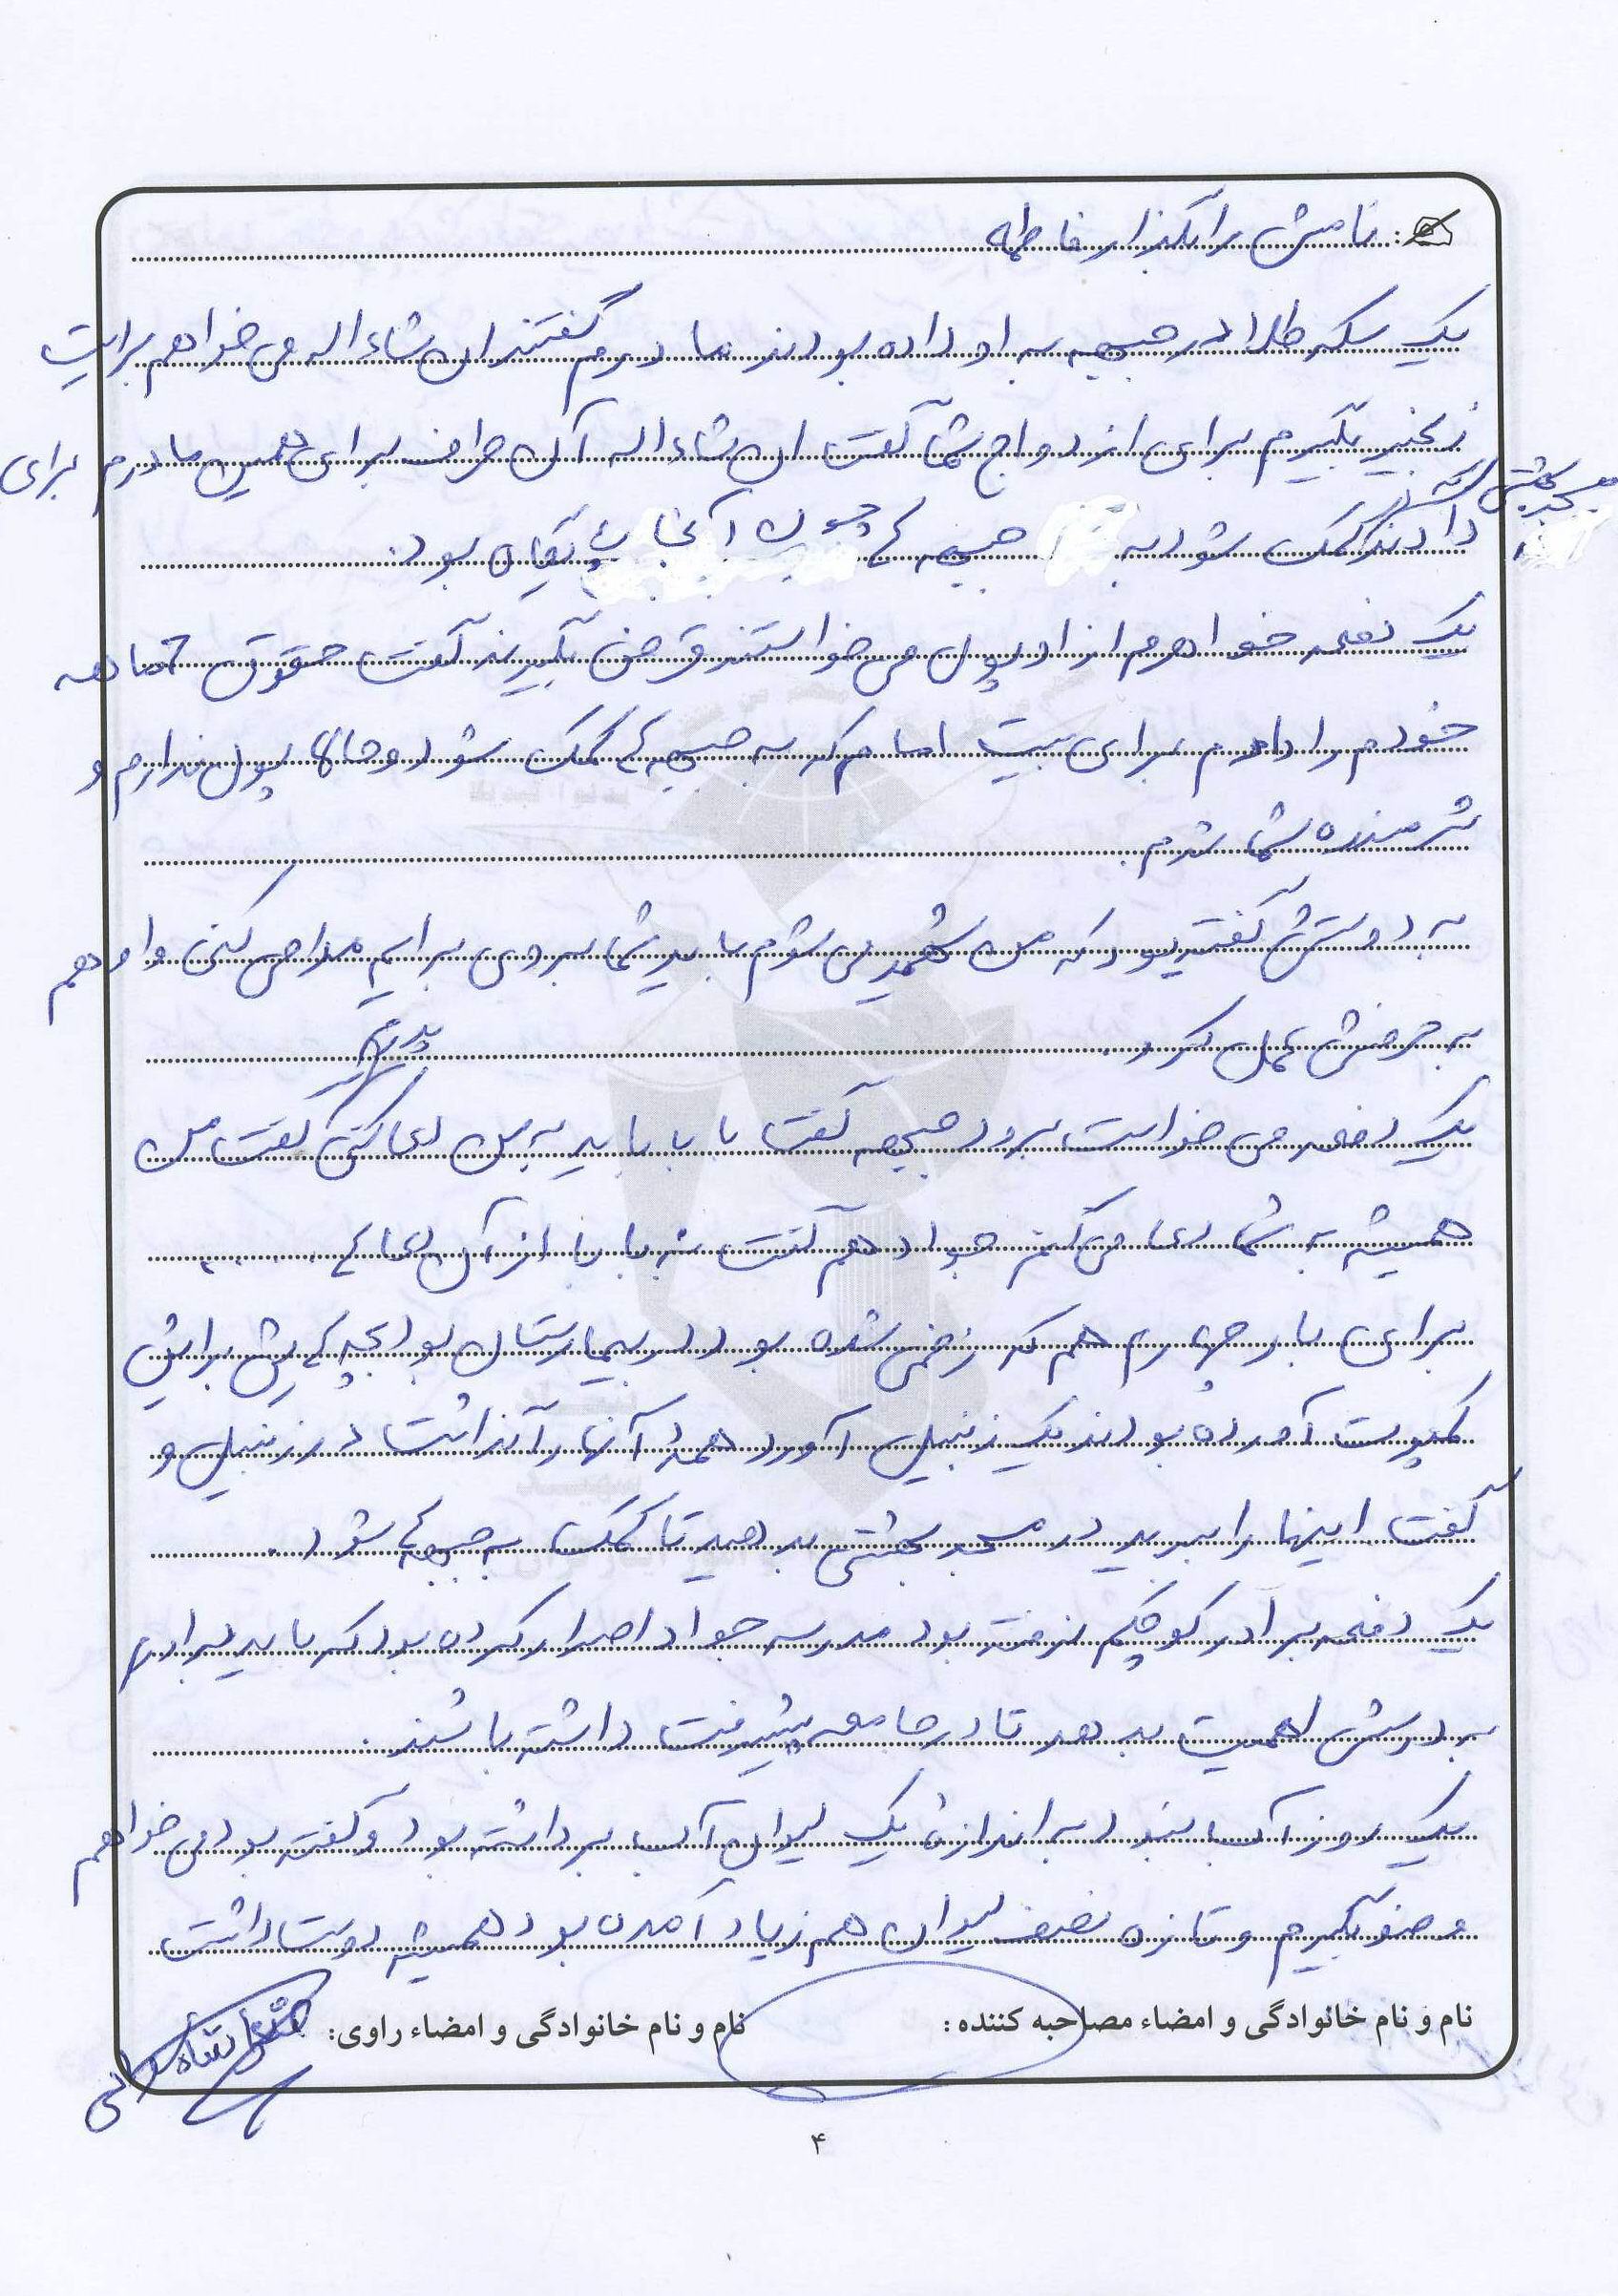 نامش را بگذار فاطمه
یک سکه طلا در جبهه به او داده بودند مادرم گفتند ان شاء اله می خواهم برایت
زنجیر بگیرم برای ازدواج شما گفت ان شاء اله آن طرف برای همین مادرم برای
مسجد بهشتی
دادند کمک شود به جبهه ء چون آنجا پایگاه بود.
یک دفعه خواهرم از او پول می خواستند قرض بگیرند گفت حقوق ۲ ماهه
خودم را دادم برای بیت امام که به جبهه ء کمک شود و حالا پول ندارم و
شرمنده شما شدم.
به دوستش گفته بود که من شهید می شوم باید شما بروی برایم مداحی کنی و او هم
به حرفش عمل کرد.
پدرم
یک دفعه می خواست برود جبهه گفت بابا باید به من دعا کنی گفت من
همیشه به شما دعا می کنم جواد هم گفت نه بابا از آن دعا ء ......
برای بار چهارم هم که زخمی شده بود در بیمارستان بود بچه ء برایش
کمپوت آورده بودند یک زنبیل آورد همهٔ آنها را گذاشت در زنبیل و
گفت اینها را ببرید در مسجد بهشتی بدهید تا کمک به جبهه ء شود.
یک دفعه برادر کوچکم نرفته بود مدرسه جواد اصرار کرده بود که باید برادرم
به درسش اهمیت بدهد تا در جامعه پیشرفت داشته باشند.
یک روز آب نبود به اندازهٔ یک لیوان آب برداشته بود و گفته بود می خواهم
وضو بگیرم و تازه نصف لیوان هم زیاد آمده بود همیشه دوست داشت
نام و نام خانوادگی و امضاء مصاحبه کننده: نام و نام خانوادگی و امضاء راوی:
۴